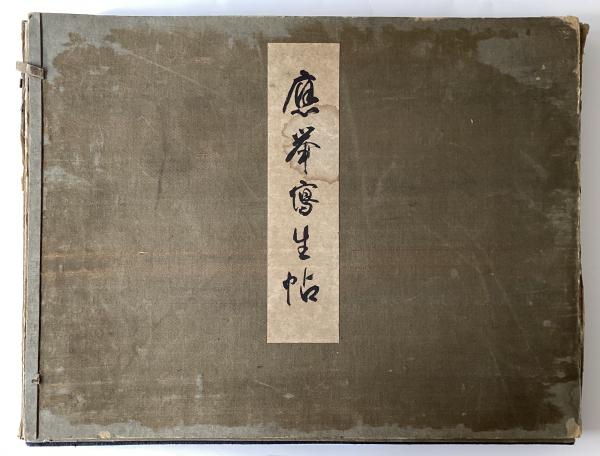 應挙寫生帖